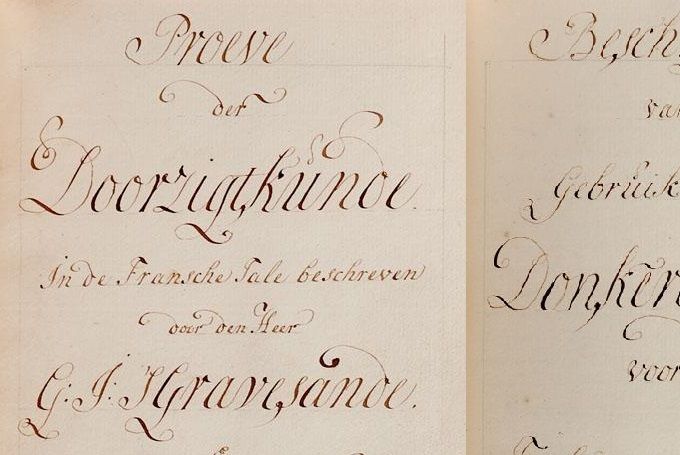 Proeve
der
Doorzigtkunde.
In de Fransche Tale beschreven
door den Heer
G: J: 'SGravesande.
Besch
van
Gebruik
Donkere
voor